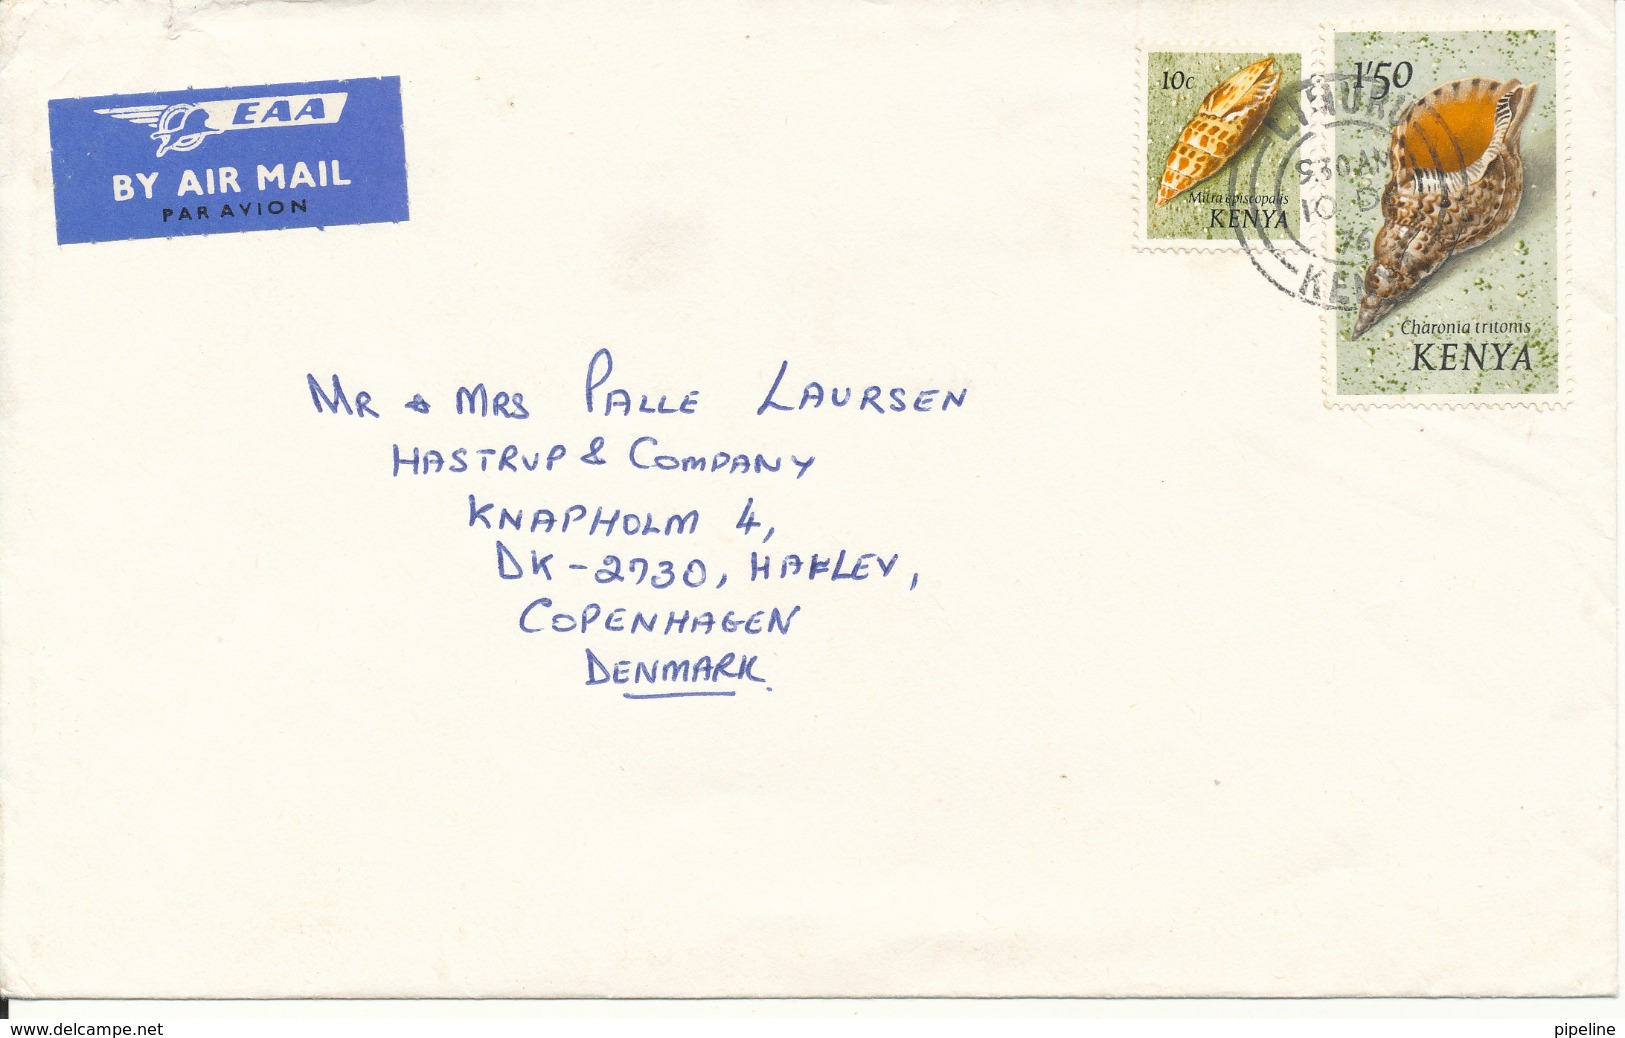 EAA
BY AIR MAIL
PAR AVION
10c
Mitra episcopalis
KENYA
1'50
Charonia tritonis
KENYA
9.30 AM
10
76
MR & MRS PALLE LAURSEN
HASTRUP & COMPANY
KNAPHOLM 4,
DK-2730, HAFLEV,
COPENHAGEN
DENMARK.
www.delcampe.net
pipeline